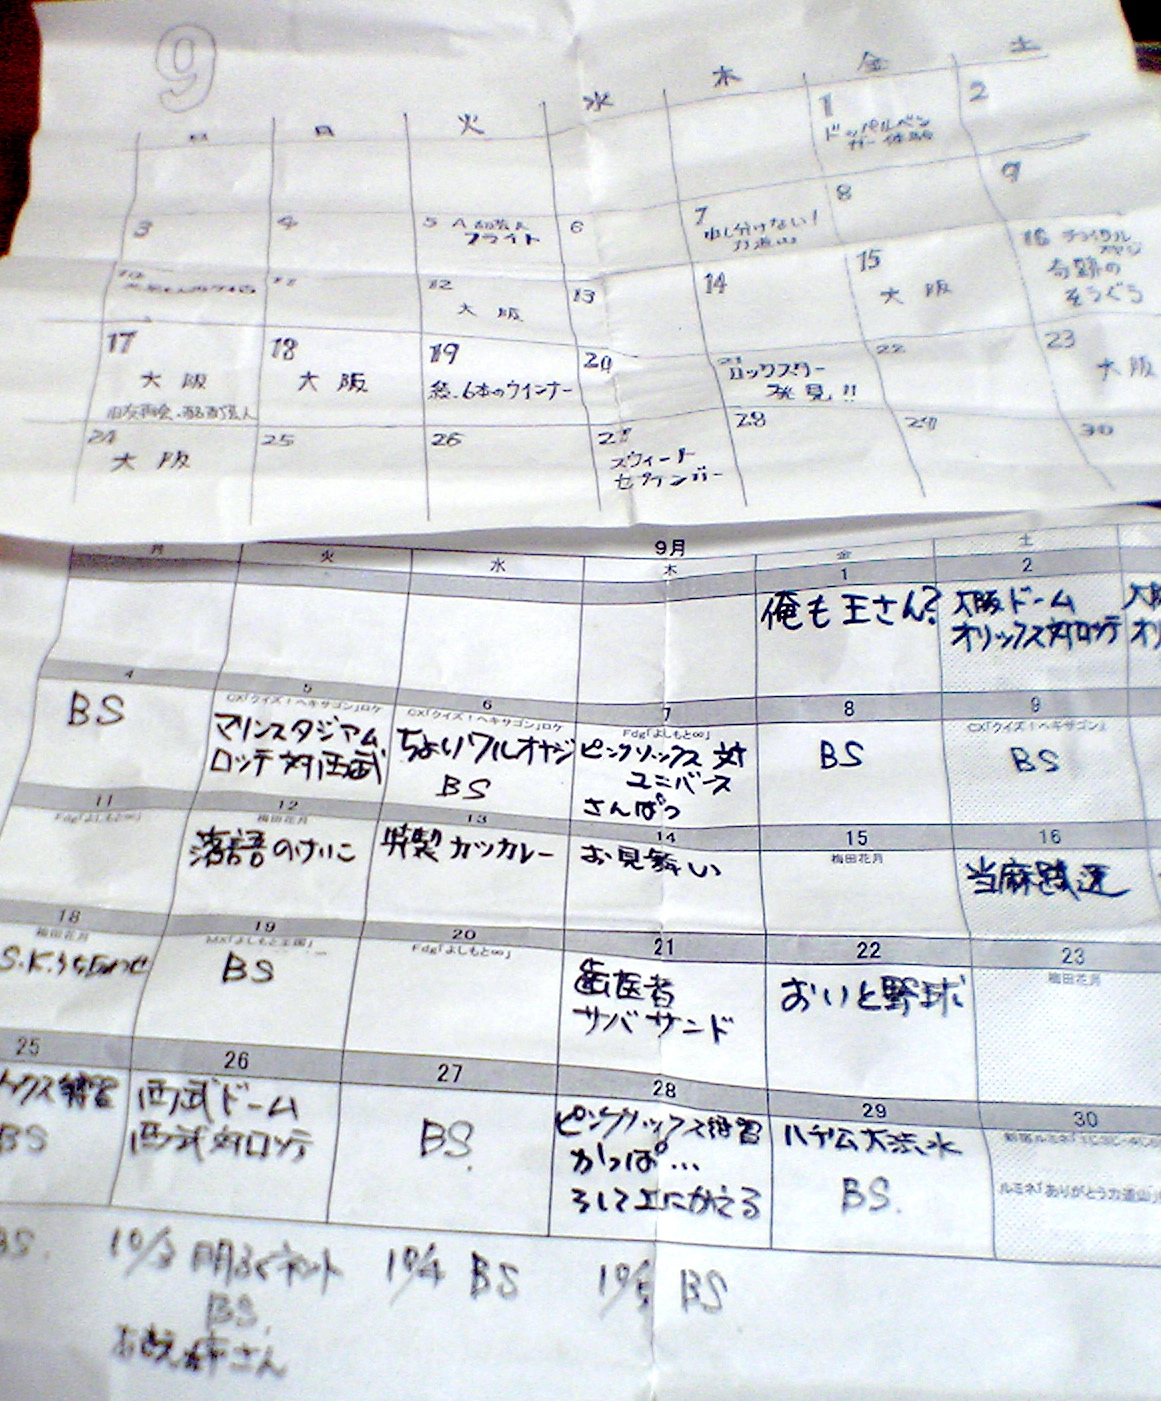 9
日 月 火 水 木 金 土
1 2
ドッペルゲン
ガー体験
3 4 5 6 7 8 9
フライト
申し分けない!
力道山
10 11 12 13 14 15 16
大阪 大阪
奇跡の
そうぐう
17 18 19 20 21 22 23
大阪 大阪 続・6本のウインナー ロックスター 大阪
発見!!
旧友再会
24 25 26 27 28 29 30
大阪 スウィート
セプテンバー
9月
月 火 水 木 金 土
1 2
俺も王さん? 大阪ドーム
オリックス対ロッテ
4 5 6 7 8 9
CX「クイズ!ヘキサゴン」ロケ CX「クイズ!ヘキサゴン」ロケ Fdg「よしもと∞」 CX「クイズ!ヘキサゴン」
BS マリンスタジアム ちょいワルオヤジ ピンクソックス対 BS BS
ロッテ対西武 BS ユニバース
さんぱつ
11 12 13 14 15 16
Fdg「よしもと∞」 梅田花月 梅田花月
落語のけいこ 特製カツカレー お見舞い 当麻
18 19 20 21 22 23
梅田花月 MX「よしもと王国」 Fdg「よしもと∞」 梅田花月
S.K.うちあわせ BS 歯医者 おいと野球
サバサンド
25 26 27 28 29 30
練習 西武ドーム BS ピンクソックス練習 ハデム大洪水
BS 西武対ロッテ かっぱ… BS. ルミネ「ありがとう力道山」
そして土にかえる
BS. 10/3 明ふくネット 10/4 BS 10/5 BS
BS.